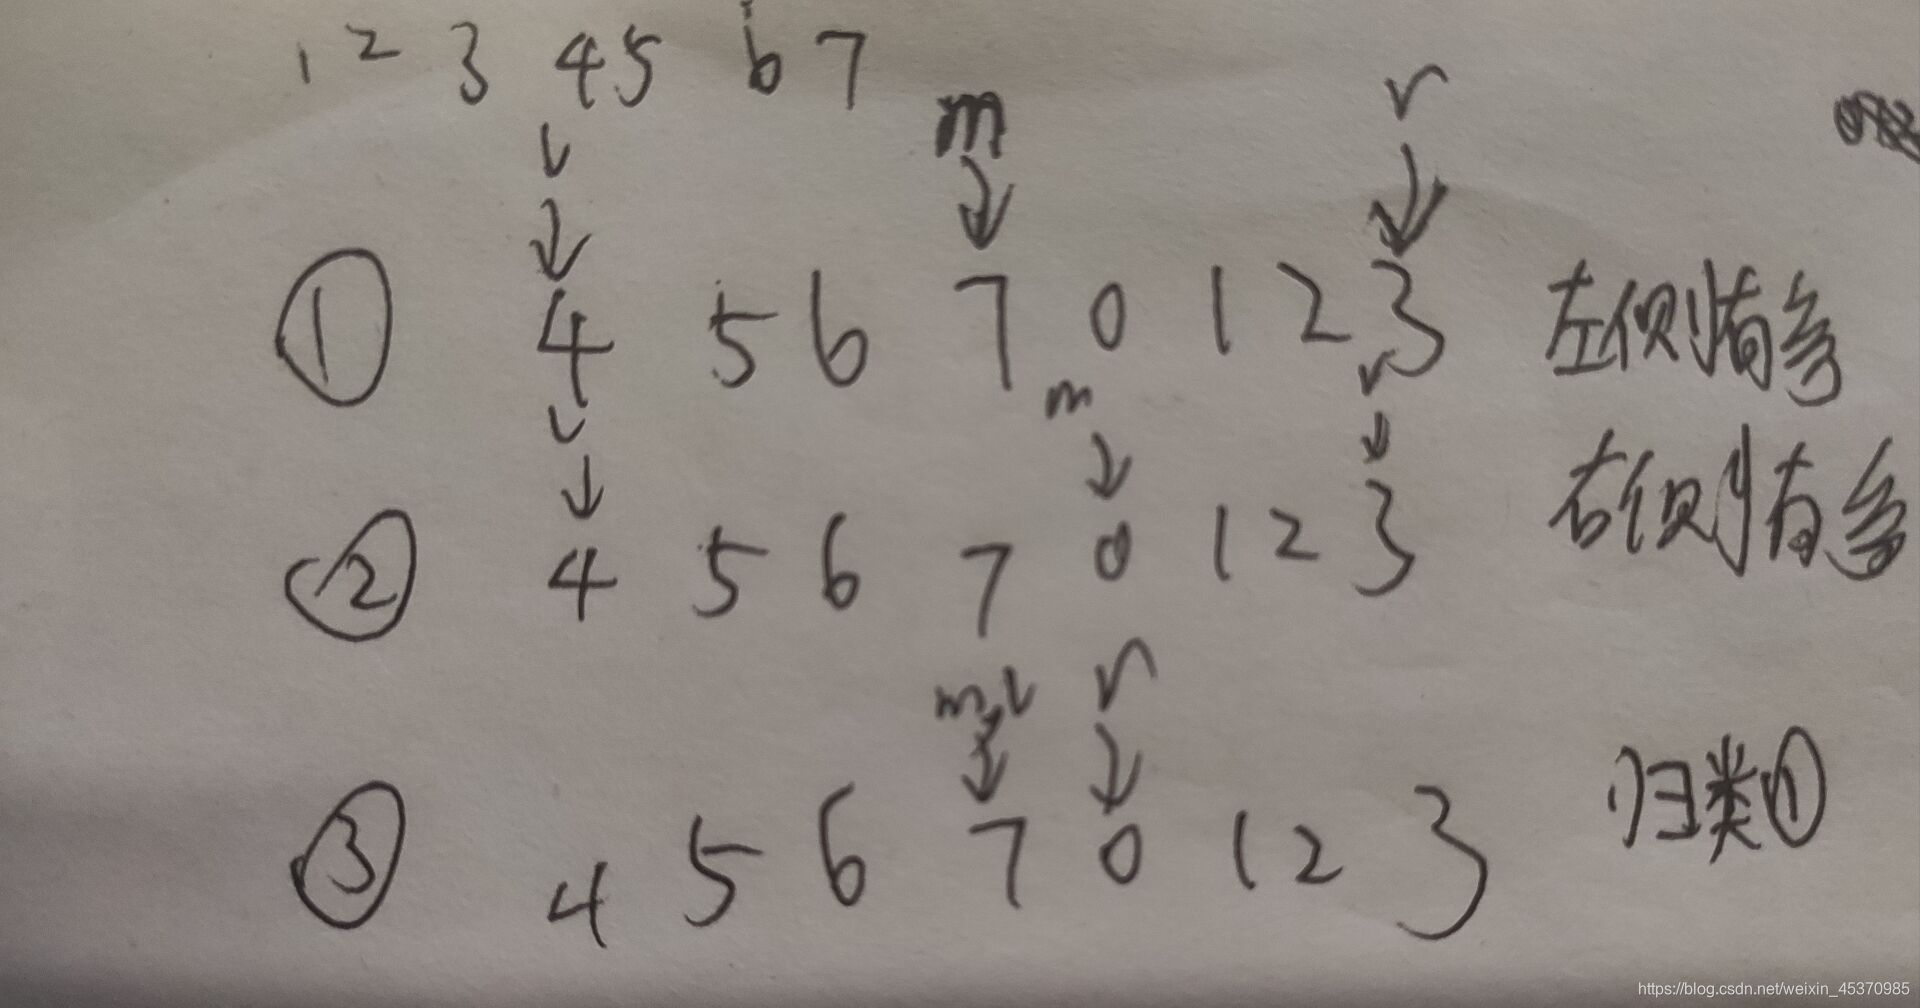 1 2 3 4 5 6 7
l m r
① 4 5 6 7 0 1 2 3 左侧有序
l m r
② 4 5 6 7 0 1 2 3 右侧有序
m,l r
③ 4 5 6 7 0 1 2 3 归类①
https://blog.csdn.net/weixin_45370985